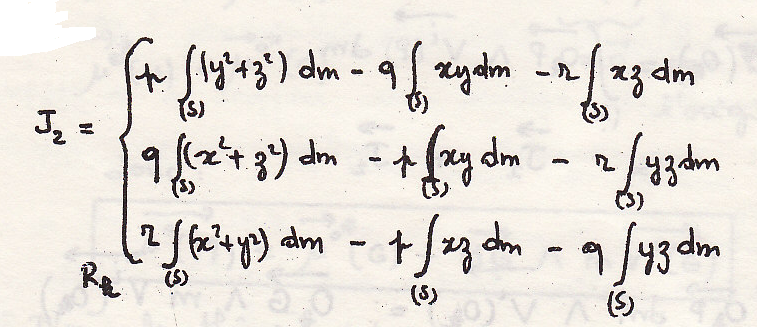 p ∫(S) (y²+z²) dm - q ∫(S) xy dm - r ∫(S) xz dm
J₂ = { q ∫(S) (x²+z²) dm - p ∫(S) xy dm - r ∫(S) yz dm
r ∫(S) (x²+y²) dm - p ∫(S) xz dm - q ∫(S) yz dm